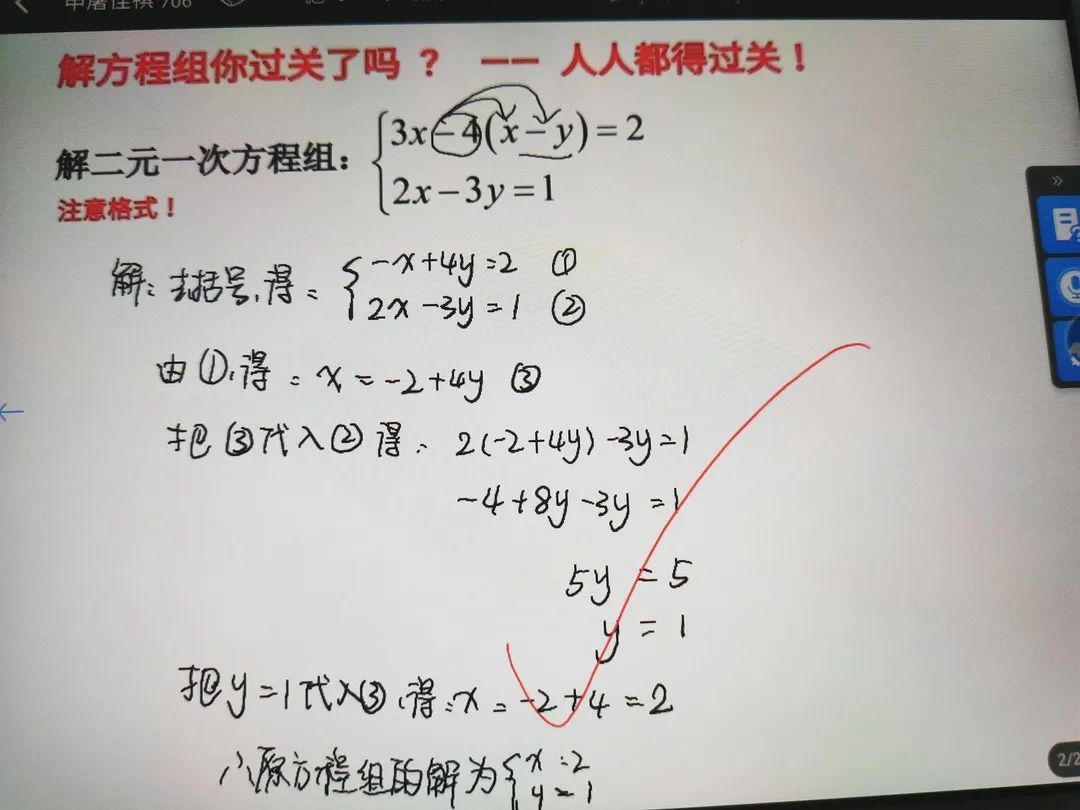 解方程组你过关了吗？ —— 人人都得过关！
解二元一次方程组：{3x-4(x-y)=2
2x-3y=1
注意格式！
解：去括号，得：{-x+4y=2 ①
2x-3y=1 ②
由①，得：x=-2+4y ③
把③代入②得：2(-2+4y)-3y=1
-4+8y-3y=1
5y=5
y=1
把y=1代入③，得：x=-2+4=2
∴原方程组的解为{x=2
y=1
2/2